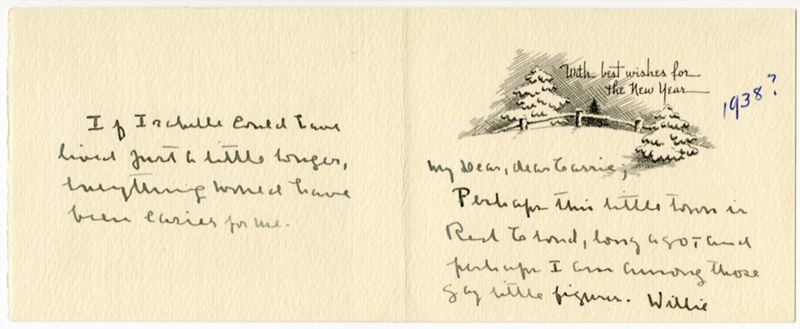 If Isabelle could have
lived just a little longer,
everything would have
been easier for me.
With best wishes for
the New Year
1938?
My Dear, dear Carrie;
Perhaps this little town is
Red Cloud, long ago, and
perhaps I am among those
gay little figures. Willie